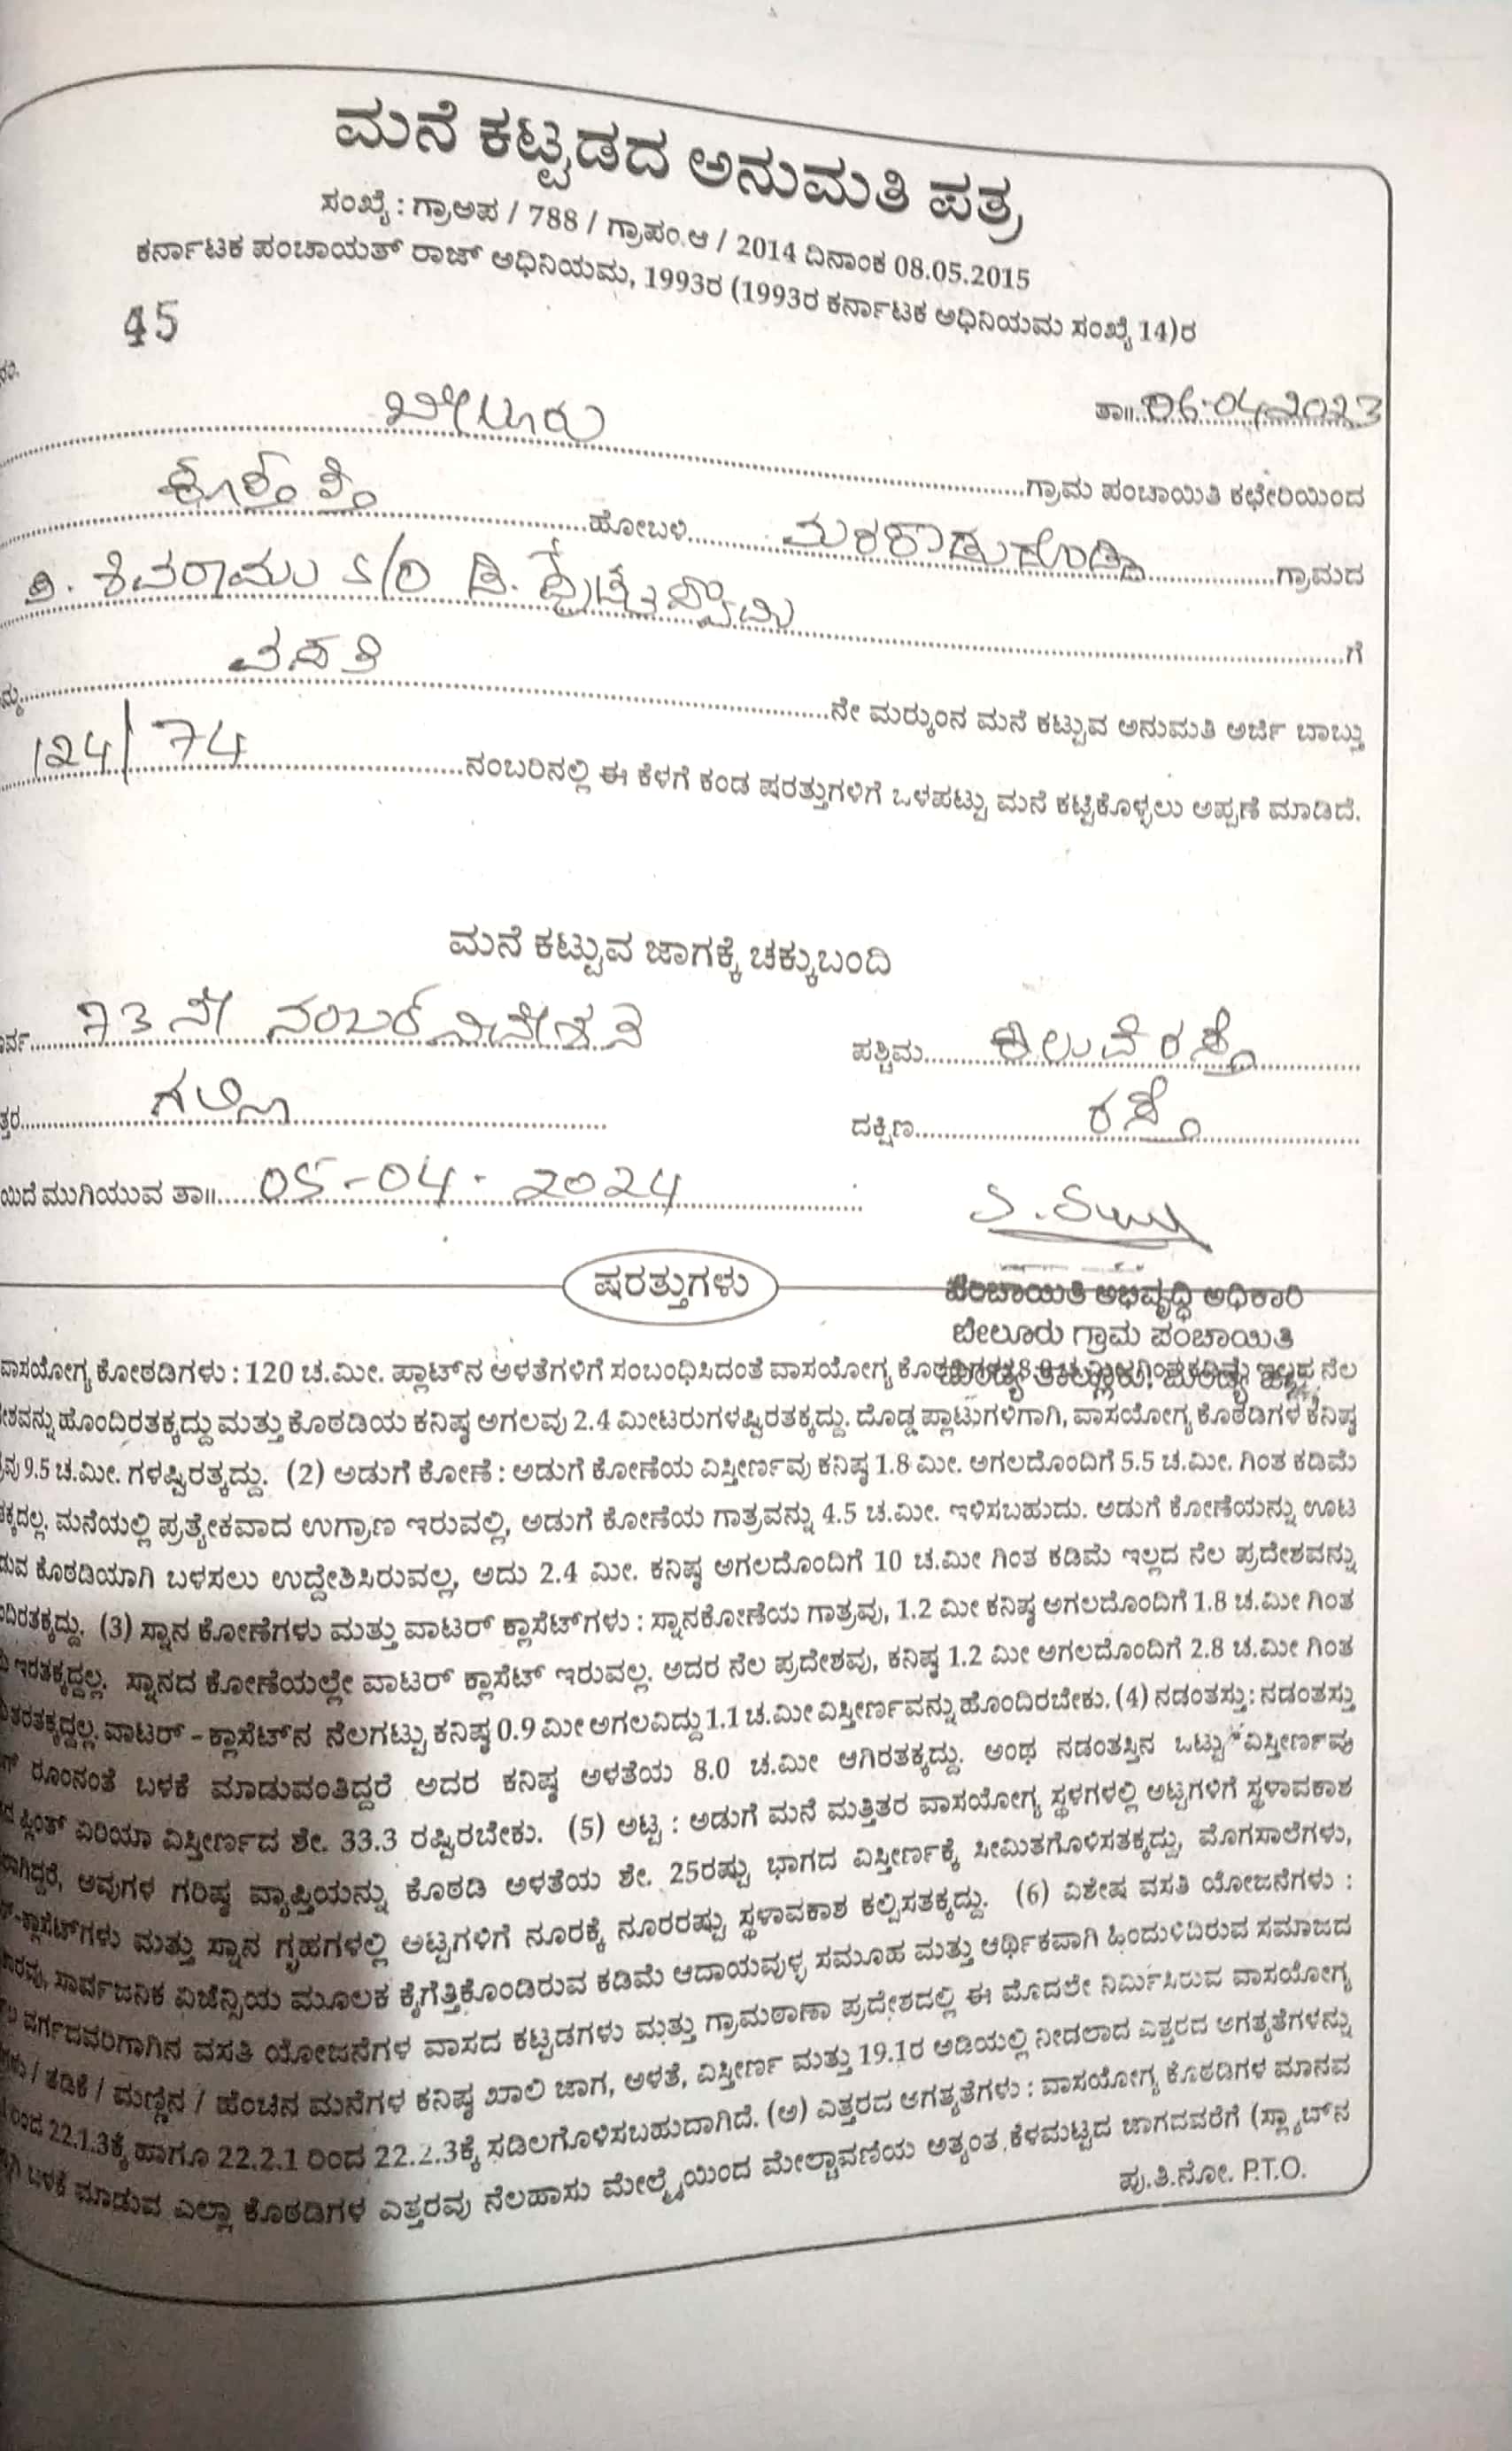 ಮನೆ ಕಟ್ಟಡದ ಅನುಮತಿ ಪತ್ರ
ಸಂಖ್ಯೆ : ಗ್ರಾಅಪ / 788 / ಗ್ರಾಪಂ.ಆ / 2014 ದಿನಾಂಕ 08.05.2015
ಕರ್ನಾಟಕ ಪಂಚಾಯತ್ ರಾಜ್ ಅಧಿನಿಯಮ, 1993ರ (1993ರ ಕರ್ನಾಟಕ ಅಧಿನಿಯಮ ಸಂಖ್ಯೆ 14)ರ
45
ತಾ॥ 06.04.2023
ಬೇಲೂರು ಗ್ರಾಮ ಪಂಚಾಯಿತಿ ಕಛೇರಿಯಿಂದ
ಹೋಬಳಿ ಗ್ರಾಮದ
ಶಿವರಾಮು S/O ಡಿ. ಗೆ
ವಸತಿ ನೇ ಮರ‍್ಕುಂನ ಮನೆ ಕಟ್ಟುವ ಅನುಮತಿ ಅರ್ಜಿ ಬಾಬ್ತು
124/74 ನಂಬರಿನಲ್ಲಿ ಈ ಕೆಳಗೆ ಕಂಡ ಷರತ್ತುಗಳಿಗೆ ಒಳಪಟ್ಟು ಮನೆ ಕಟ್ಟಿಕೊಳ್ಳಲು ಅಪ್ಪಣೆ ಮಾಡಿದೆ.
ಮನೆ ಕಟ್ಟುವ ಜಾಗಕ್ಕೆ ಚಕ್ಕುಬಂದಿ
73 ನೇ ನಂಬರ್ ನಿವೇಶನ ಪಶ್ಚಿಮ
ಗಲ್ಲಿ ದಕ್ಷಿಣ ರಸ್ತೆ
ಮುಗಿಯುವ ತಾ॥ 05-04-2024
ಷರತ್ತುಗಳು
ಪಂಚಾಯಿತಿ ಅಭಿವೃದ್ಧಿ ಅಧಿಕಾರಿ
ಬೇಲೂರು ಗ್ರಾಮ ಪಂಚಾಯಿತಿ
ವಾಸಯೋಗ್ಯ ಕೋಠಡಿಗಳು : 120 ಚ.ಮೀ. ಪ್ಲಾಟ್‌ನ ಅಳತೆಗಳಿಗೆ ಸಂಬಂಧಿಸಿದಂತೆ ವಾಸಯೋಗ್ಯ ನೆಲ
ಹೊಂದಿರತಕ್ಕದ್ದು ಮತ್ತು ಕೊಠಡಿಯ ಕನಿಷ್ಠ ಅಗಲವು 2.4 ಮೀಟರುಗಳಷ್ಟಿರತಕ್ಕದ್ದು. ದೊಡ್ಡ ಪ್ಲಾಟುಗಳಿಗಾಗಿ, ವಾಸಯೋಗ್ಯ ಕೊಠಡಿಗಳ ಕನಿಷ್ಠ
9.5 ಚ.ಮೀ. ಗಳಷ್ಟಿರತ್ಕದ್ದು. (2) ಅಡುಗೆ ಕೋಣೆ : ಅಡುಗೆ ಕೋಣೆಯ ವಿಸ್ತೀರ್ಣವು ಕನಿಷ್ಠ 1.8 ಮೀ. ಅಗಲದೊಂದಿಗೆ 5.5 ಚ.ಮೀ. ಗಿಂತ ಕಡಿಮೆ
ಮನೆಯಲ್ಲಿ ಪ್ರತ್ಯೇಕವಾದ ಉಗ್ರಾಣ ಇರುವಲ್ಲಿ, ಅಡುಗೆ ಕೋಣೆಯ ಗಾತ್ರವನ್ನು 4.5 ಚ.ಮೀ. ಇಳಿಸಬಹುದು. ಅಡುಗೆ ಕೋಣೆಯನ್ನು ಊಟ
ಕೊಠಡಿಯಾಗಿ ಬಳಸಲು ಉದ್ದೇಶಿಸಿರುವಲ್ಲ, ಅದು 2.4 ಮೀ. ಕನಿಷ್ಠ ಅಗಲದೊಂದಿಗೆ 10 ಚ.ಮೀ ಗಿಂತ ಕಡಿಮೆ ಇಲ್ಲದ ನೆಲ ಪ್ರದೇಶವನ್ನು
(3) ಸ್ನಾನ ಕೋಣೆಗಳು ಮತ್ತು ವಾಟರ್ ಕ್ಲಾಸೆಟ್‌ಗಳು : ಸ್ನಾನಕೋಣೆಯ ಗಾತ್ರವು, 1.2 ಮೀ ಕನಿಷ್ಠ ಅಗಲದೊಂದಿಗೆ 1.8 ಚ.ಮೀ ಗಿಂತ
ಇರತಕ್ಕದ್ದಲ್ಲ. ಸ್ನಾನದ ಕೋಣೆಯಲ್ಲೇ ವಾಟರ್ ಕ್ಲಾಸೆಟ್ ಇರುವಲ್ಲ. ಅದರ ನೆಲ ಪ್ರದೇಶವು, ಕನಿಷ್ಠ 1.2 ಮೀ ಅಗಲದೊಂದಿಗೆ 2.8 ಚ.ಮೀ ಗಿಂತ
ವಾಟರ್ – ಕ್ಲಾಸೆಟ್‌ನ ನೆಲಗಟ್ಟು ಕನಿಷ್ಠ 0.9 ಮೀ ಅಗಲವಿದ್ದು 1.1 ಚ.ಮೀ ವಿಸ್ತೀರ್ಣವನ್ನು ಹೊಂದಿರಬೇಕು. (4) ನಡಂತಸ್ತು : ನಡಂತಸ್ತು
ರೂಂನಂತೆ ಬಳಕೆ ಮಾಡುವಂತಿದ್ದರೆ ಅದರ ಕನಿಷ್ಠ ಅಳತೆಯ 8.0 ಚ.ಮೀ ಆಗಿರತಕ್ಕದ್ದು. ಅಂಥ ನಡಂತಸ್ತಿನ ಒಟ್ಟು ವಿಸ್ತೀರ್ಣವು
ಪ್ಲಿಂತ್ ಏರಿಯಾ ವಿಸ್ತೀರ್ಣದ ಶೇ. 33.3 ರಷ್ಟಿರಬೇಕು. (5) ಅಟ್ಟ : ಅಡುಗೆ ಮನೆ ಮತ್ತಿತರ ವಾಸಯೋಗ್ಯ ಸ್ಥಳಗಳಲ್ಲಿ ಅಟ್ಟಗಳಿಗೆ ಸ್ಥಳಾವಕಾಶ
ಅವುಗಳ ಗರಿಷ್ಠ ವ್ಯಾಪ್ತಿಯನ್ನು ಕೊಠಡಿ ಅಳತೆಯ ಶೇ. 25ರಷ್ಟು ಭಾಗದ ವಿಸ್ತೀರ್ಣಕ್ಕೆ ಸೀಮಿತಗೊಳಿಸತಕ್ಕದ್ದು, ಮೊಗಸಾಲೆಗಳು,
ಮತ್ತು ಸ್ನಾನ ಗೃಹಗಳಲ್ಲಿ ಅಟ್ಟಗಳಿಗೆ ನೂರಕ್ಕೆ ನೂರರಷ್ಟು ಸ್ಥಳಾವಕಾಶ ಕಲ್ಪಿಸತಕ್ಕದ್ದು. (6) ವಿಶೇಷ ವಸತಿ ಯೋಜನೆಗಳು :
ಸಾರ್ವಜನಿಕ ಏಜೆನ್ಸಿಯ ಮೂಲಕ ಕೈಗೆತ್ತಿಕೊಂಡಿರುವ ಕಡಿಮೆ ಆದಾಯವುಳ್ಳ ಸಮೂಹ ಮತ್ತು ಆರ್ಥಿಕವಾಗಿ ಹಿಂದುಳಿದಿರುವ ಸಮಾಜದ
ವರ್ಗದವರಿಗಾಗಿನ ವಸತಿ ಯೋಜನೆಗಳ ವಾಸದ ಕಟ್ಟಡಗಳು ಮತ್ತು ಗ್ರಾಮಠಾಣಾ ಪ್ರದೇಶದಲ್ಲಿ ಈ ಮೊದಲೇ ನಿರ್ಮಿಸಿರುವ ವಾಸಯೋಗ್ಯ
/ ತಡಿಕೆ / ಮಣ್ಣಿನ / ಹೆಂಚಿನ ಮನೆಗಳ ಕನಿಷ್ಠ ಖಾಲಿ ಜಾಗ, ಅಳತೆ, ವಿಸ್ತೀರ್ಣ ಮತ್ತು 19.1ರ ಅಡಿಯಲ್ಲಿ ನೀಡಲಾದ ಎತ್ತರದ ಅಗತ್ಯತೆಗಳನ್ನು
22.1.3ಕ್ಕೆ ಹಾಗೂ 22.2.1 ರಿಂದ 22.2.3ಕ್ಕೆ ಸಡಿಲಗೊಳಿಸಬಹುದಾಗಿದೆ. (ಅ) ಎತ್ತರದ ಅಗತ್ಯತೆಗಳು : ವಾಸಯೋಗ್ಯ ಕೊಠಡಿಗಳ ಮಾನವ
ಬಳಕೆ ಮಾಡುವ ಎಲ್ಲಾ ಕೊಠಡಿಗಳ ಎತ್ತರವು ನೆಲಹಾಸು ಮೇಲ್ಮೈಯಿಂದ ಮೇಲ್ಚಾವಣಿಯ ಅತ್ಯಂತ ಕೆಳಮಟ್ಟದ ಜಾಗದವರೆಗೆ (ಸ್ಲ್ಯಾಬ್‌ನ
ಪು.ತಿ.ನೋ. P.T.O.